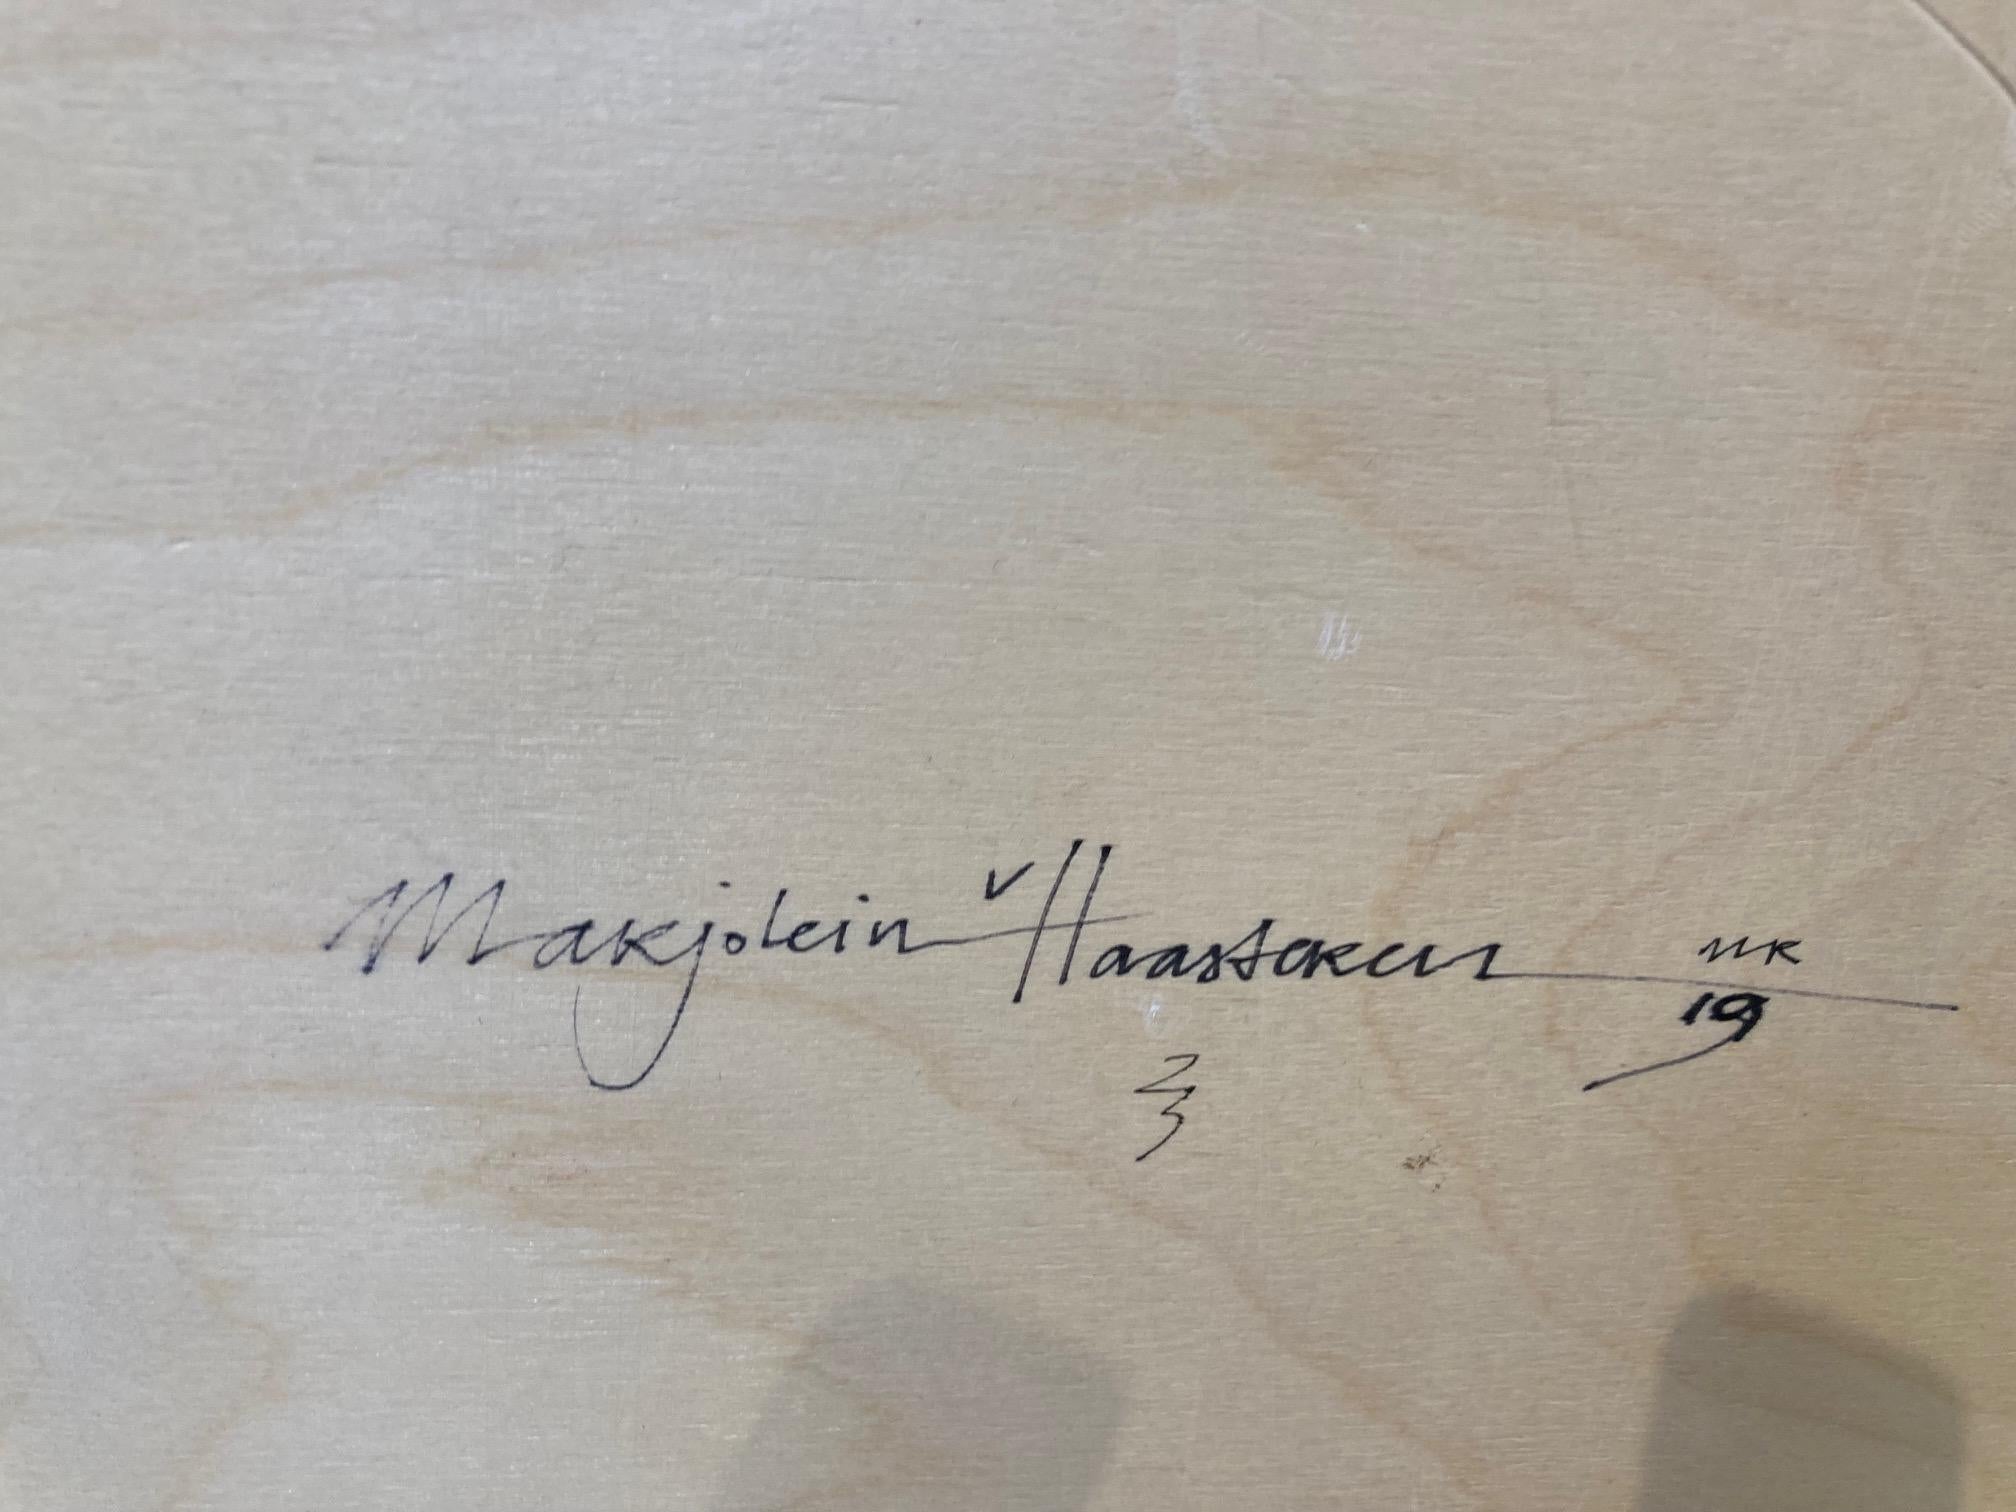 Marjolein v Haasteren
MR
19
2
3